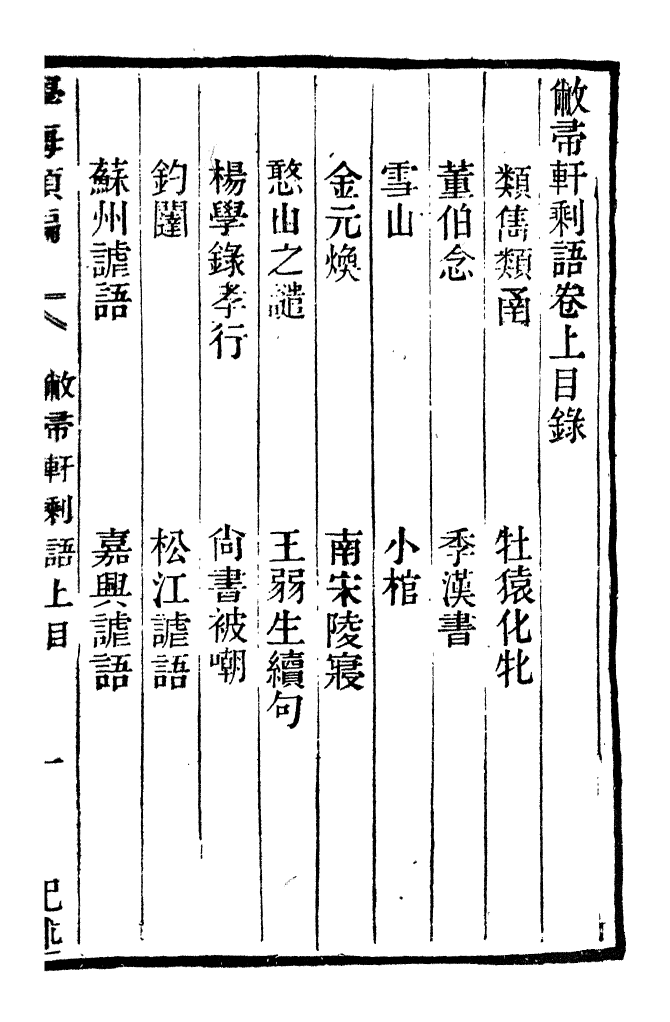 敝帚軒剩語卷上目錄
類雋類函　牡猿化牝
董伯念　季漢書
雪山　小棺
金元煥　南宋陵寢
憨山之譴　王弱生續句
楊學錄孝行　尙書被嘲
釣闈　松江謔語
蘇州謔語　嘉興謔語
學海類編　敝帚軒剩語上目　一